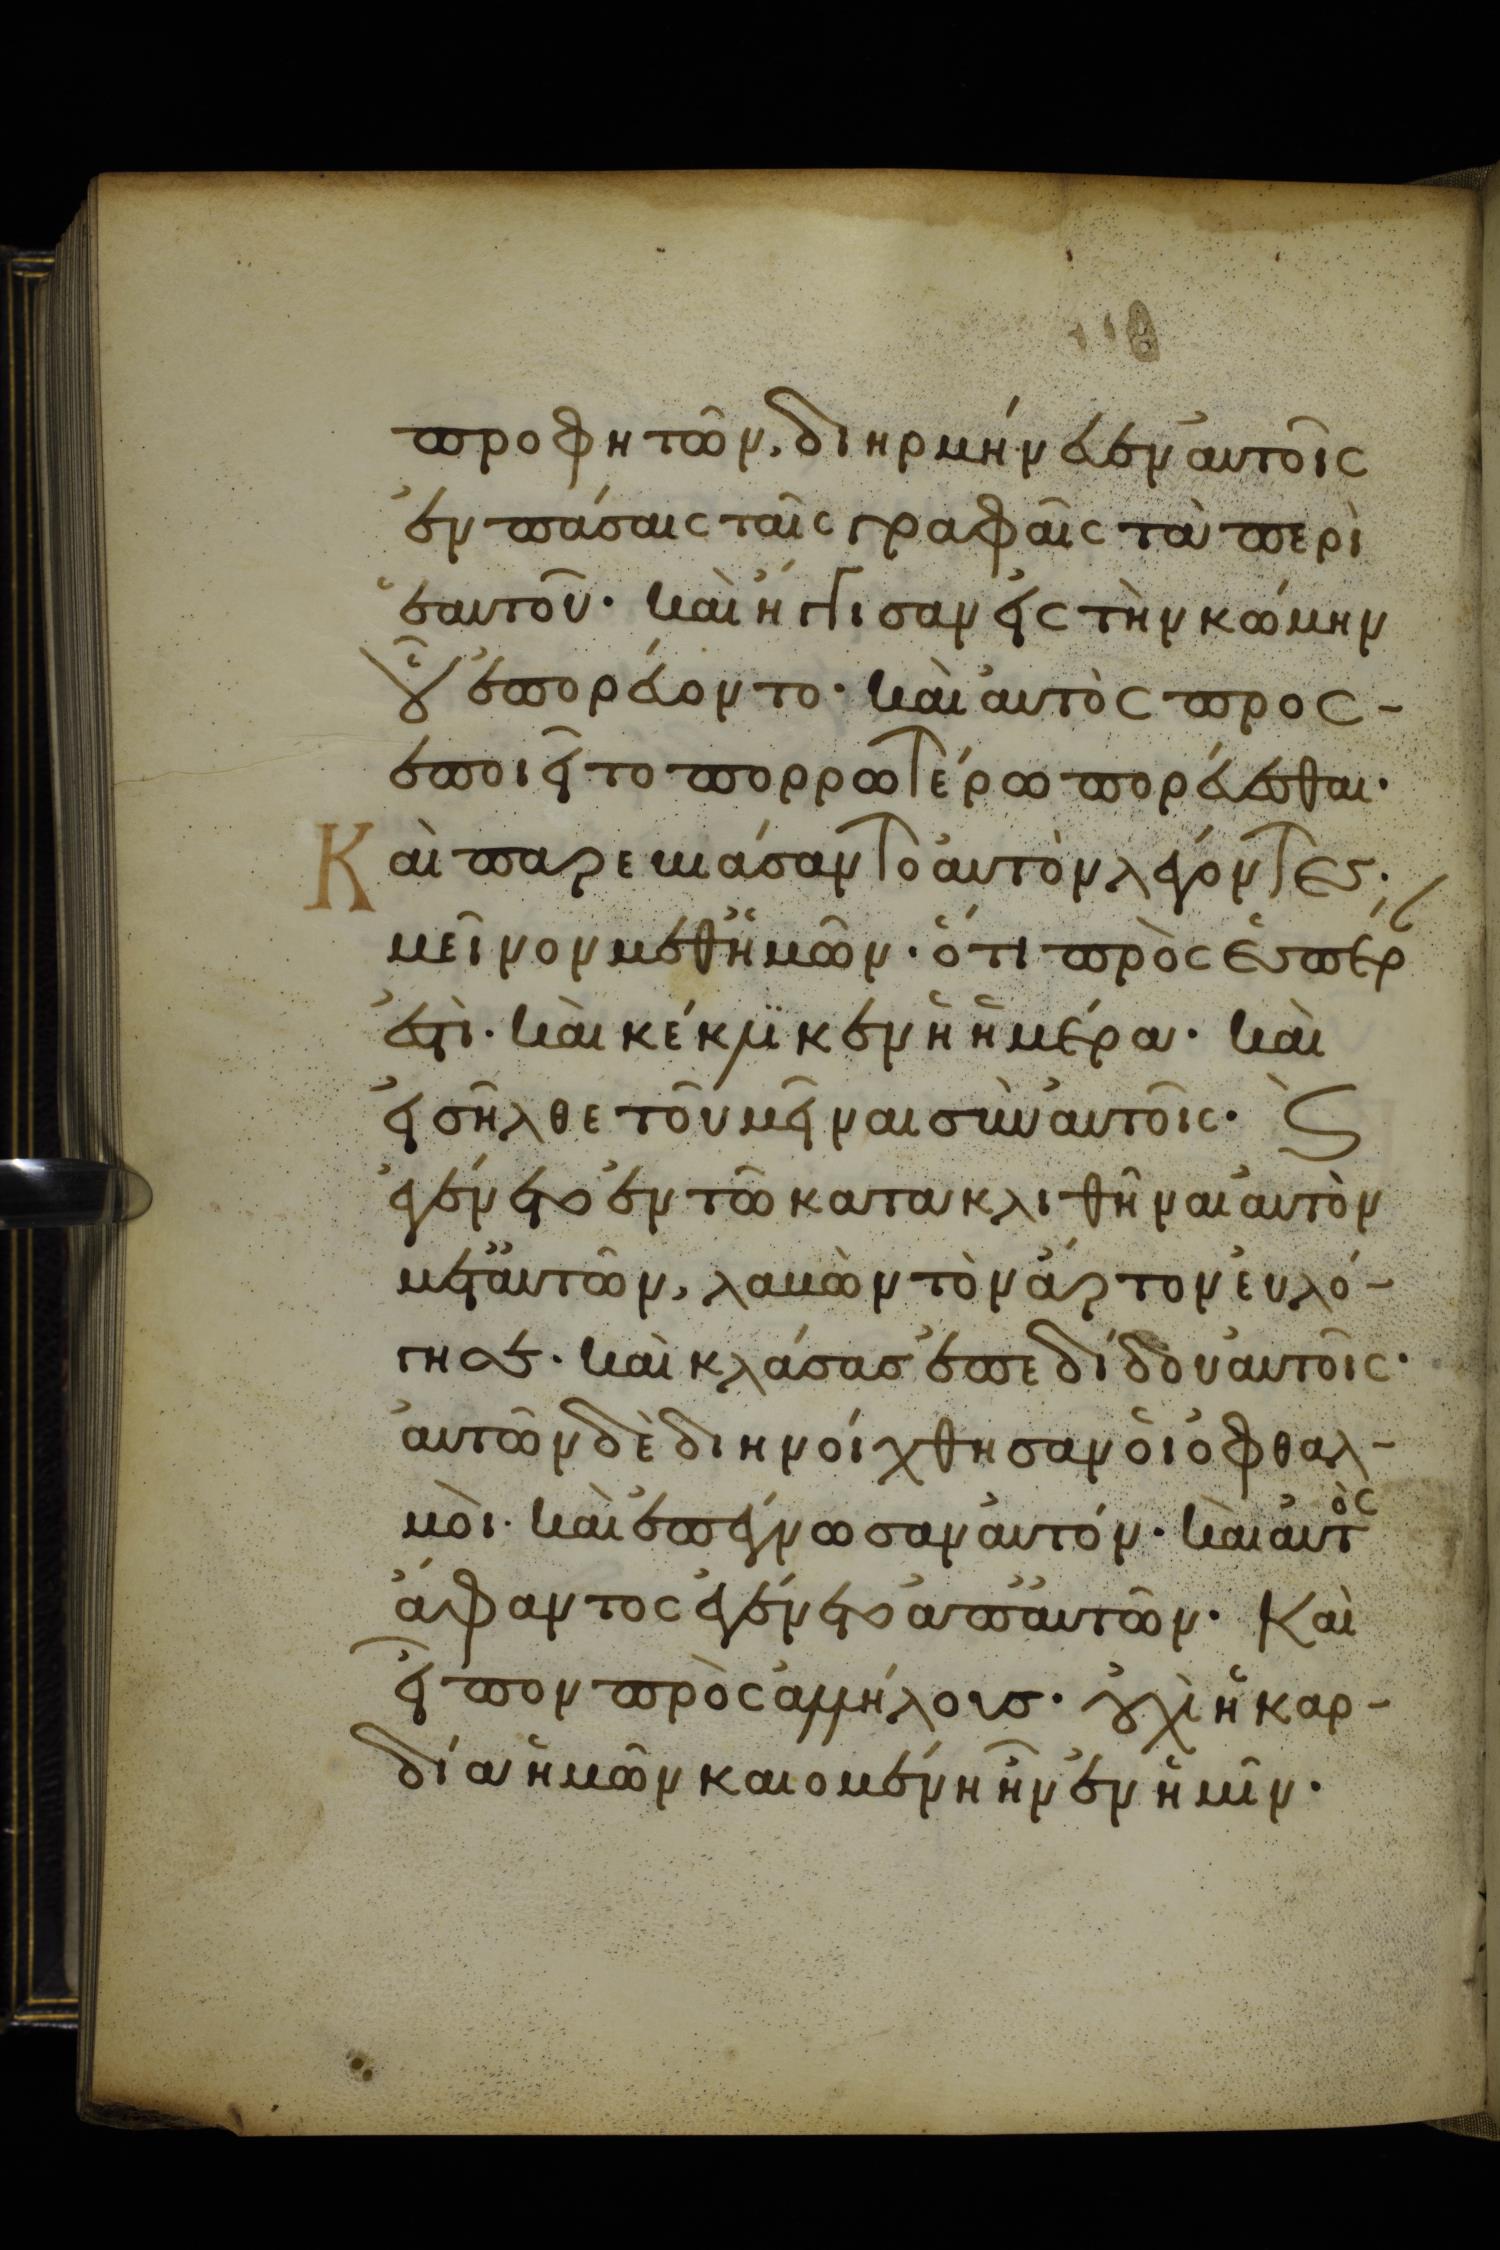 προφητῶν, διηρμήνευεν αὐτοῖς
ἐν πάσαις ταῖς γραφαῖς τὰ περὶ
ἑαυτοῦ· καὶ ἤγγισαν εἰς τὴν κώμην
οὗ ἐπορεύοντο· καὶ αὐτὸς προς-
εποιεῖτο πορρωτέρω πορεύεσθαι·
Καὶ παρεβιάσαντο αὐτὸν λέγοντες·
μεῖνον μεθ' ἡμῶν· ὅτι πρὸς ἑσπέρ
ἐστὶ· καὶ κέκλϊκεν ἡ ἡμέρα· καὶ
εἰσῆλθε τοῦ μεῖναι σὺν αὐτοῖς· Ϛ
ἐγένετο ἐν τῶ κατακλιθῆναι αὐτὸν
μετ' αὐτῶν, λαβὼν τὸν ἄρτον εὐλό-
γησε· καὶ κλάσας ἐπεδίδου αὐτοῖς·
αὐτῶν δὲ διηνοίχθησαν ὁι ὀφθαλ-
μὸι· καὶ ἐπέγνωσαν αὐτόν· καὶ αὐτὸς
ἄφαντος ἐγένετο ἀπ' αὐτῶν· Καὶ
εἶπον πρὸς ἀλλήλους· οὐχὶ ἡ καρ-
δία ἡμῶν καιομένη ἦν ἐν ἡμῖν·